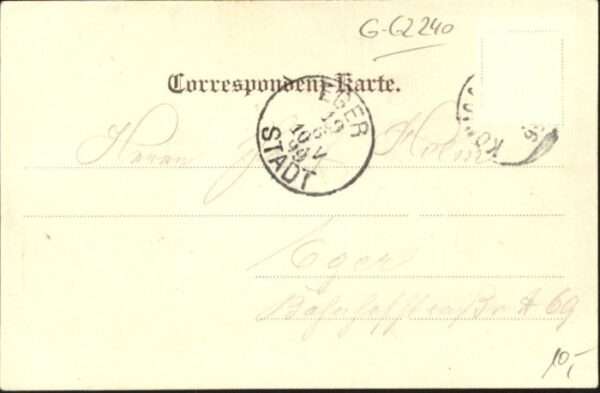 G-G2240
Correspondenz-Karte.
EGER
19
5
10 V
99
STADT
KÖNIGS
Herrn J. Holm
Eger
Bahnhofstraße № 69
10,-